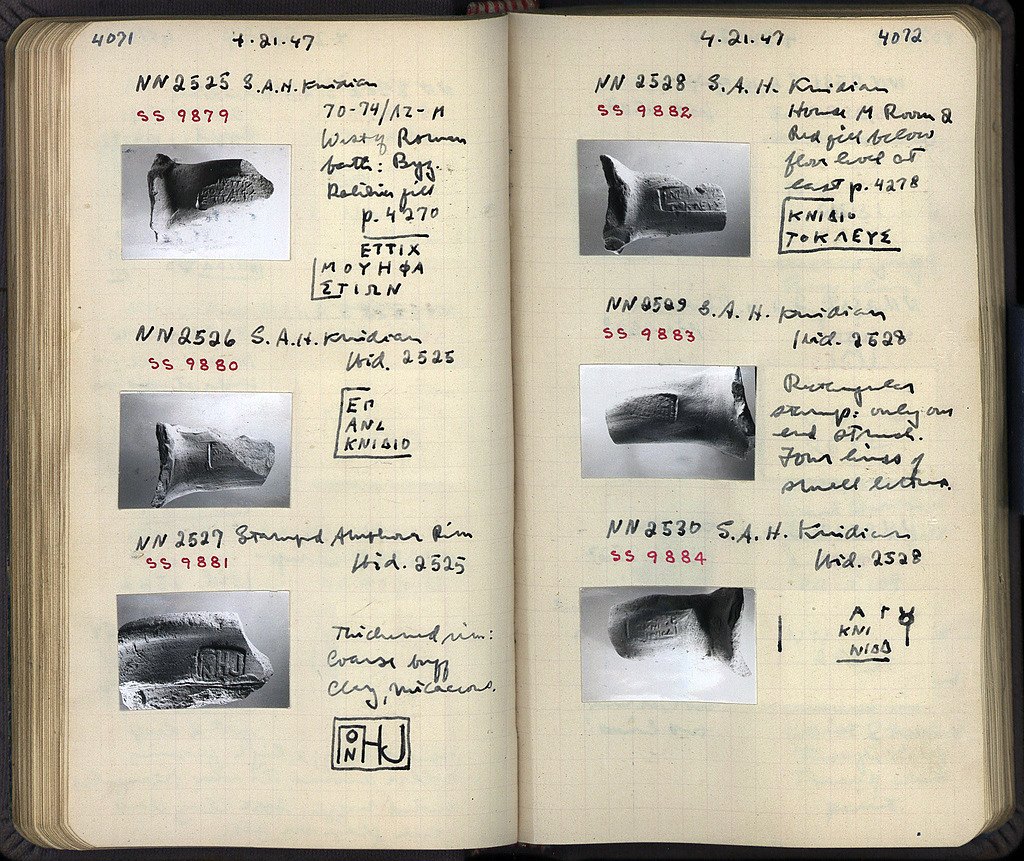 4071
4.21.47
NN 2525 S.A.H. Knidian
SS 9879
70-74/ΛΖ-Μ
West of Roman
bath: Byz.
fill
p. 4270
ΕΠΙΧ
ΜΟΥΗΦΑ
ΣΤΙΩΝ
NN 2526 S.A.H. Knidian
SS 9880
Ibid. 2525
ΕΠ
ΑΝΔ
ΚΝΙΔΙΟ
NN 2527 Stamped Amphora Rim
SS 9881
Ibid. 2525
Thickened rim:
Coarse buff
clay, micaceous.
ΟΝ HJ
4.21.47
4072
NN 2528 S.A.H. Knidian
SS 9882
House M Room 2
Red fill below
floor level at
east p. 4278
ΚΝΙΔΙΟ
ΤΟΚΛΕΥΣ
NN 2529 S.A.H. Knidian
SS 9883
Ibid. 2528
Rectangular
stamp: only one
end struck.
Four lines of
small letters.
NN 2530 S.A.H. Knidian
SS 9884
Ibid. 2528
Α Γ
ΚΝΙ
ΝΙΔΔ